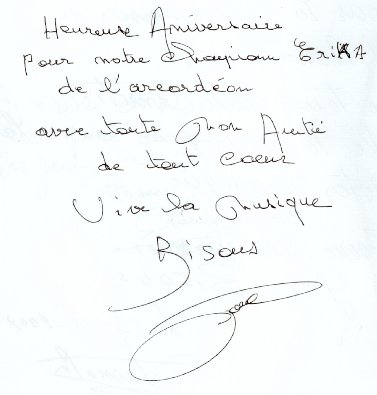 Heureuse Aniversaire
pour notre Champion EriKA
de l'accordéon
avec toute mon Amitié
de tout coeur
Vive la musique
Bisous